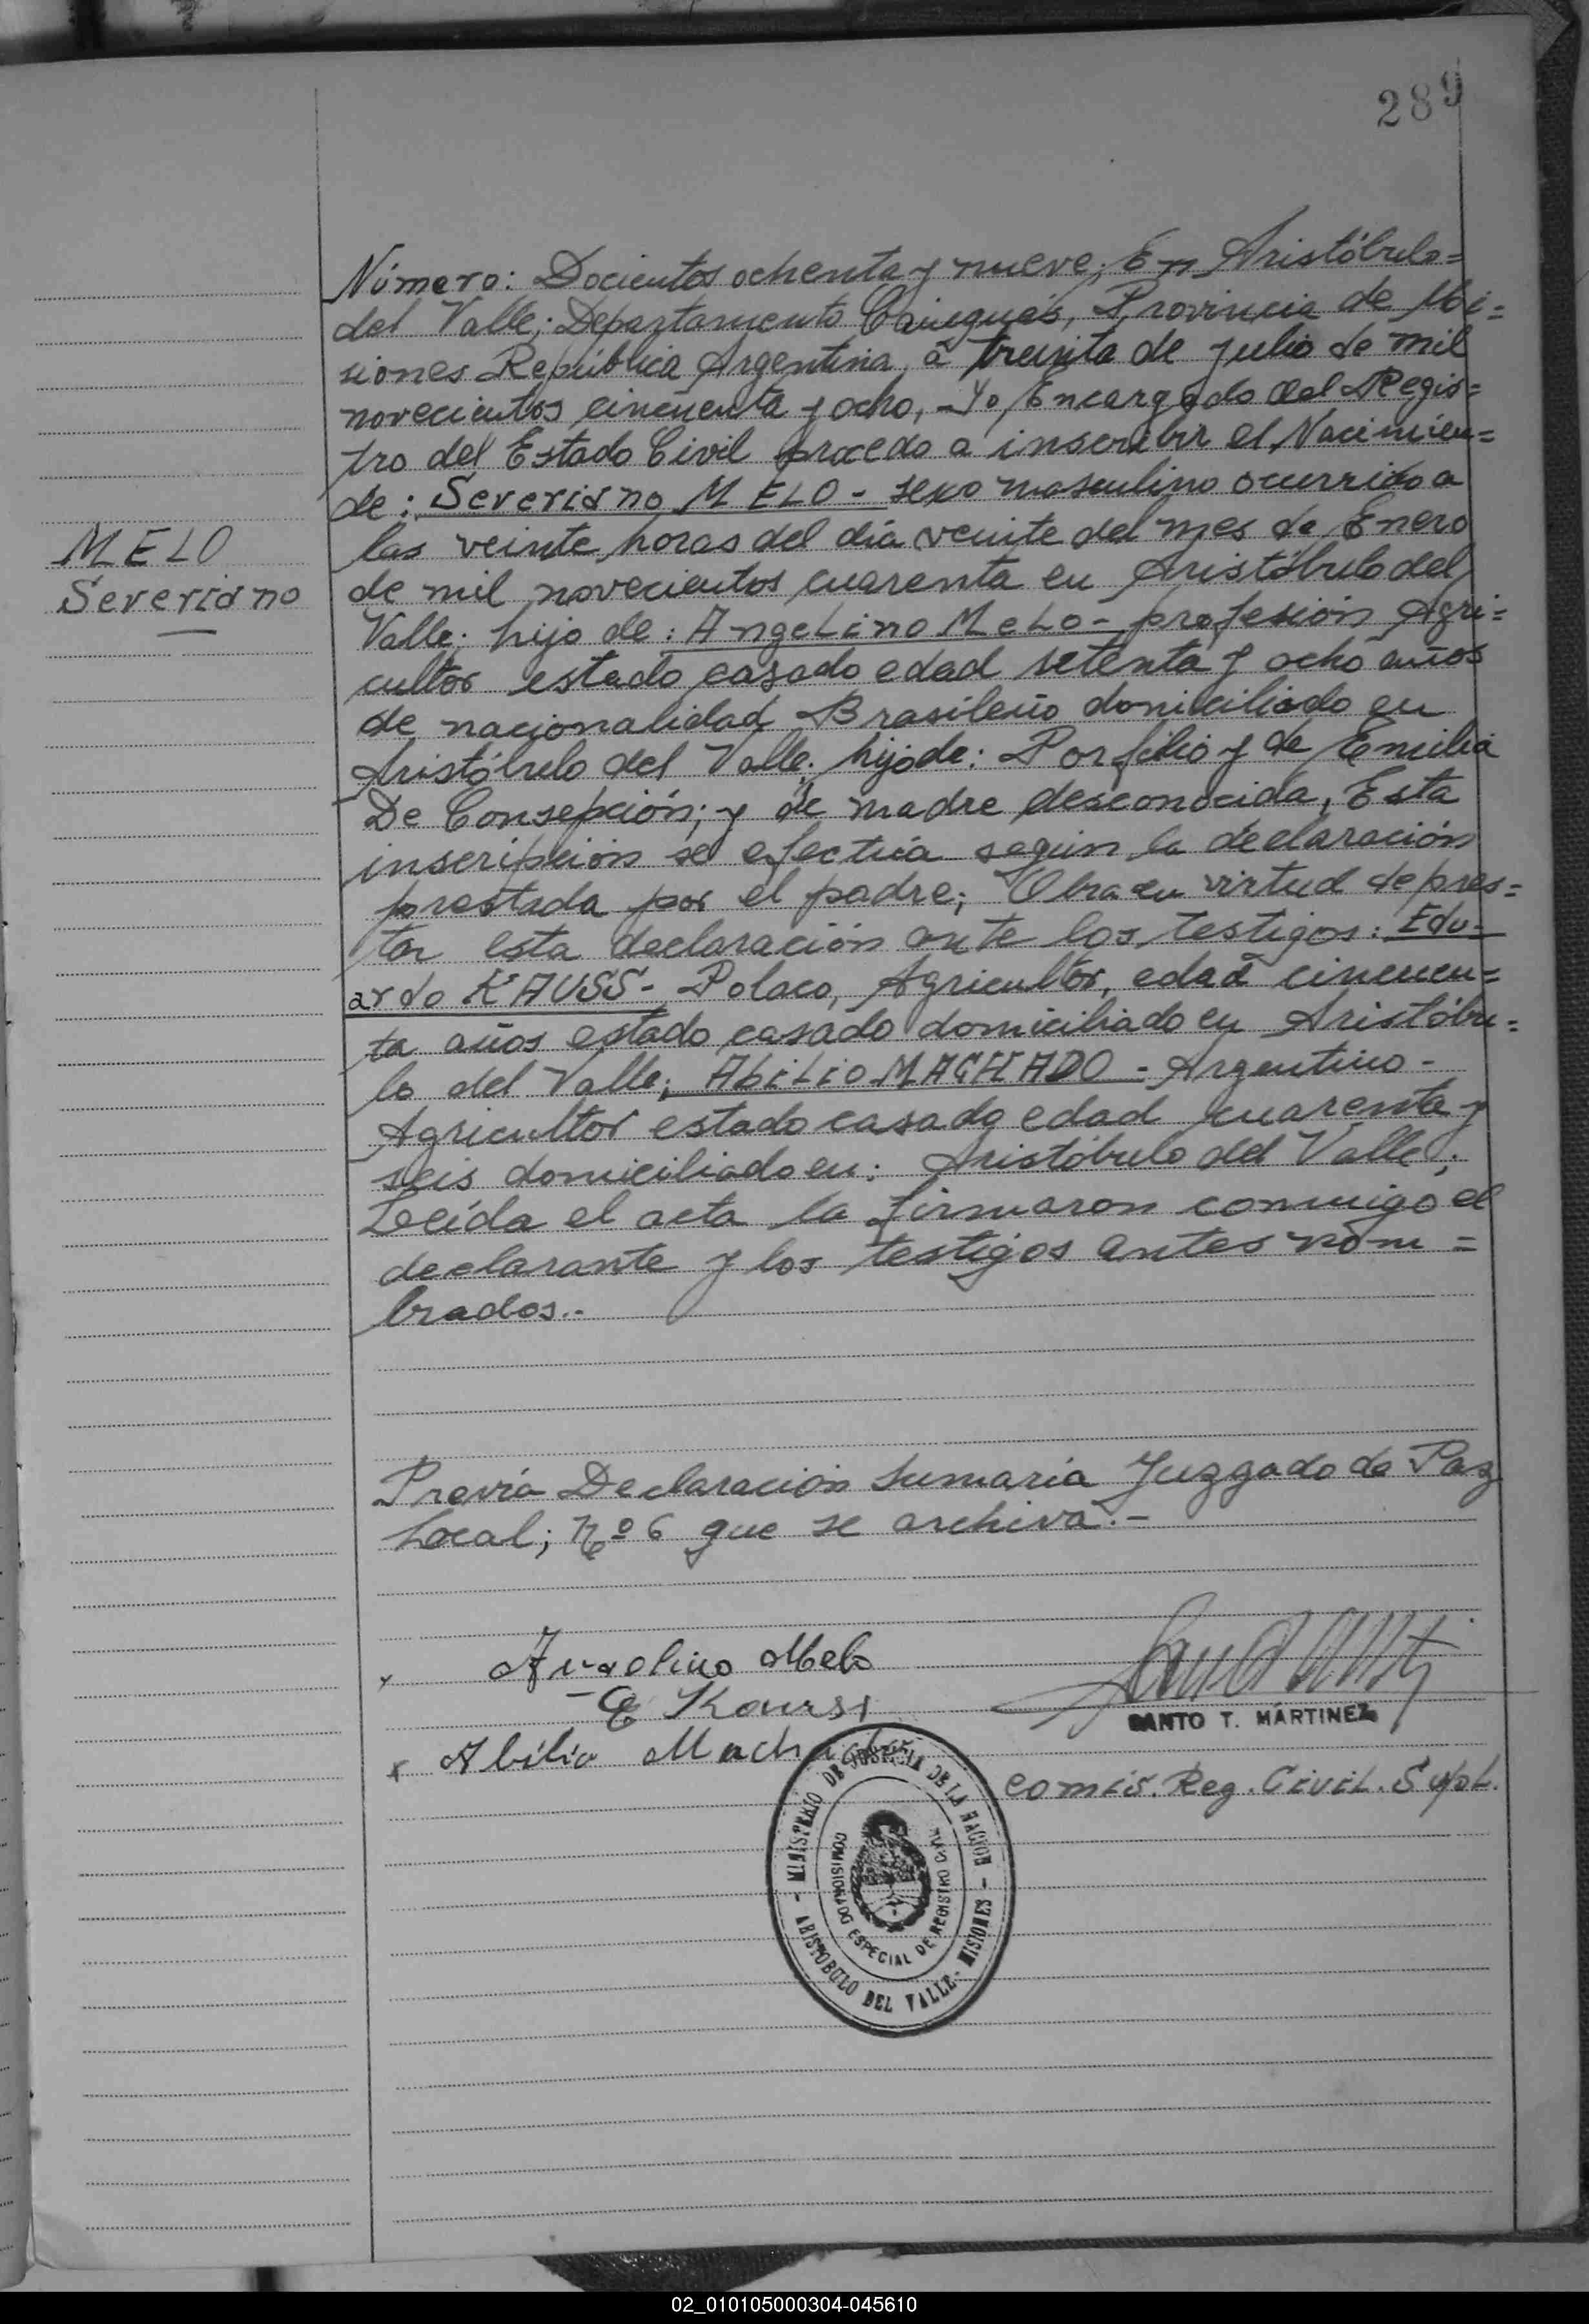 289
Número: Docientos ochenta y nueve; En Aristóbulo=
del Valle; Departamento Cainguás, Provincia de Mi=
siones República Argentina, a treinta de Julio de mil
novecientos cincuenta y ocho, - Yo, Encargado del Regis=
tro del Estado Civil procedo a inscribir el Nacimien=
de: Severiano MELO - sexo masculino ocurrido a
las veinte horas del día veinte del mes de Enero
de mil novecientos cuarenta en Aristóbulo del
Valle; hijo de: Angelino Melo - profesión Agri=
cultor estado casado edad setenta y ocho años
de nacionalidad Brasileño domiciliado en
Aristóbulo del Valle; hijo de: Porfilio y de Emilia
De Consepción; y de madre desconocida, Esta
inscripción se efectúa según la declaración
prestada por el padre; Obra en virtud de pres=
tar esta declaración ante los testigos: Edu-
ardo KAUSS - Polaco, Agricultor, edad cincuen=
ta años estado casado domiciliado en Aristóbu=
lo del Valle; Abilio MACHADO - Argentino -
Agricultor estado casado edad cuarenta y
seis domiciliado en: Aristóbulo del Valle;
Leída el acta la firmaron conmigo el
declarante y los testigos antes nom=
brados.-
MELO
Severiano
Previa Declaración Sumaria Juzgado de Paz
Local; Nº 6 que se archiva.-
Angelino Melo
E Kauss
Abilio Machado
SANTO T. MARTINEZ
Comis. Reg. Civil. Supl.
- MINISTERIO DE JUSTICIA DE LA NACION -
COMISIONADO ESPECIAL DE REGISTRO CIVIL
ARISTOBULO DEL VALLE - MISIONES
02_010105000304-045610